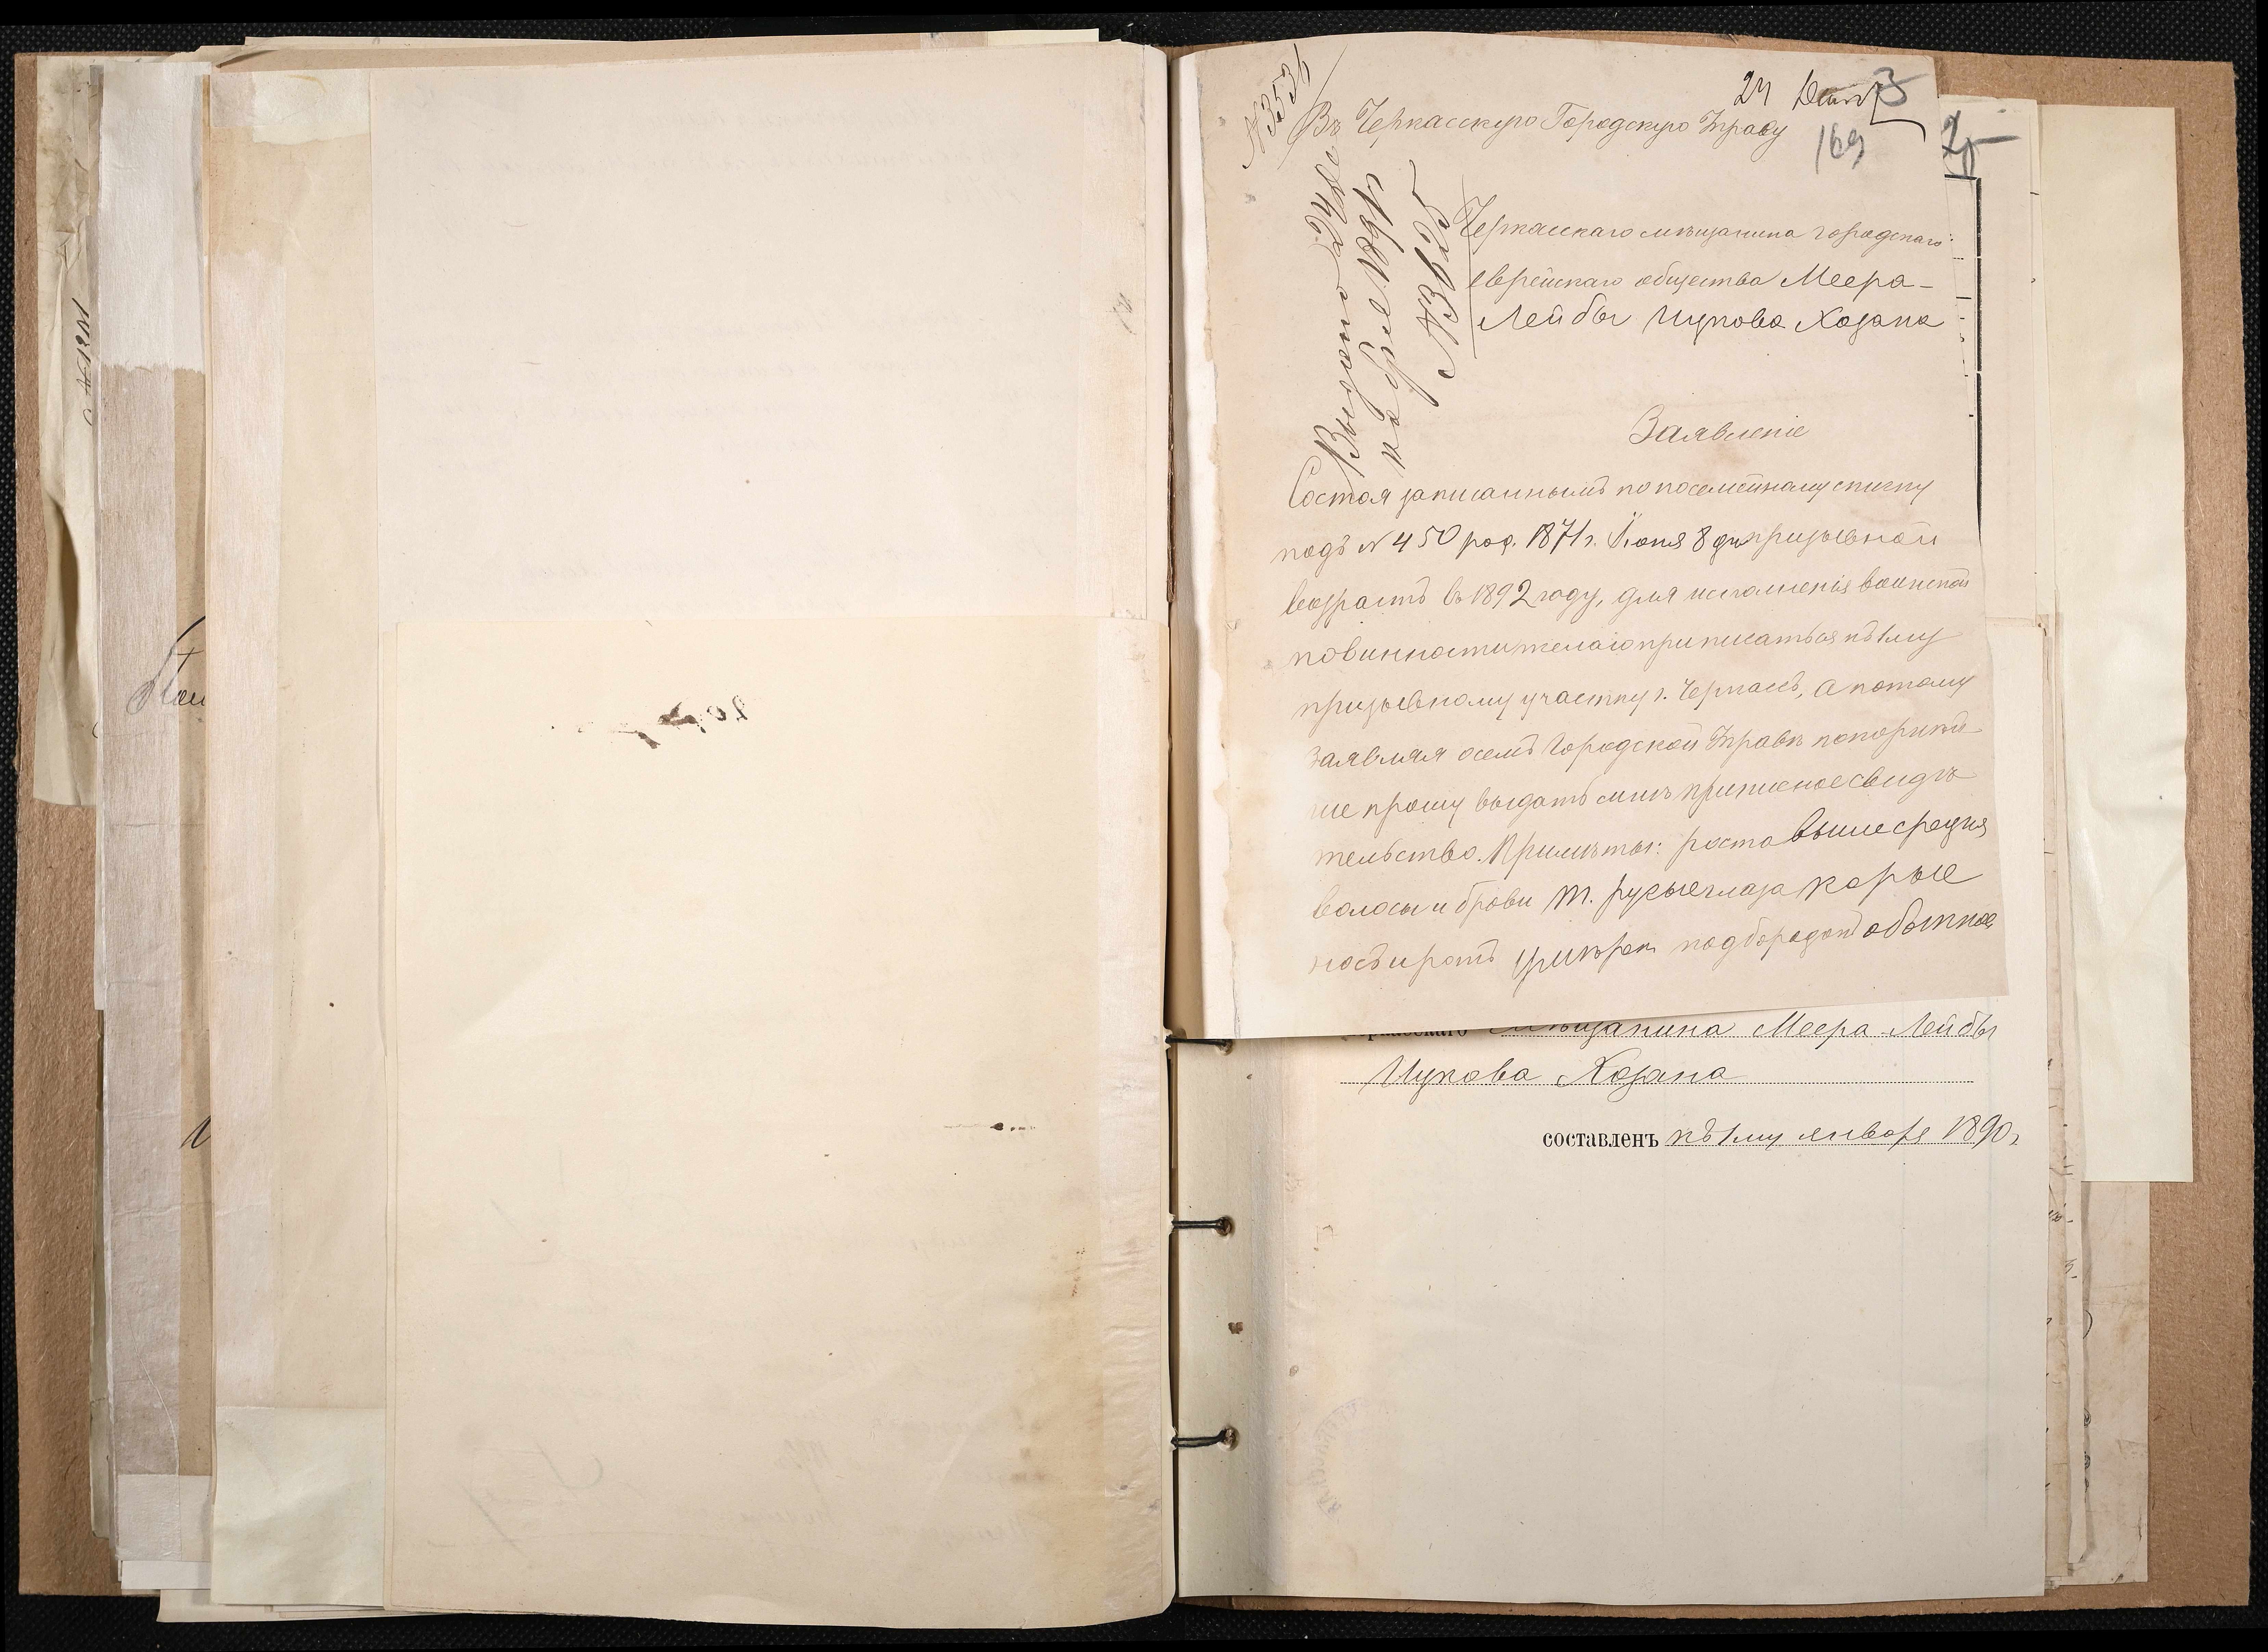 № 3536
24 Окт
Въ Черкасскую Городскую Управу
169
Выдано 24
№ 3625
Черкасскаго мѣщанина городскаго
еврейскаго общества Меера-
Лейбы Ицкова Хазана
Заявленіе
Состоя записаннымъ по посемейному списку
подъ № 450 род. 1871 г. Іюня 8 дня призывной
возрастъ въ 1892 году, для исполненія воинской
повинности желаю приписаться къ 1му
призывному участку г. Черкассъ, а потому
заявляя о семъ Городской Управѣ покорнѣй-
ше прошу выдать мнѣ приписное свидѣ
тельство. Примѣты: роста выше средня
волосы и брови т. русые глаза карые
носъ и ротъ умѣрен. подбородокъ обыкнов.
мѣщанина Меера-Лейбы
Ицкова Хазана
составленъ къ 1му января 1890 г.